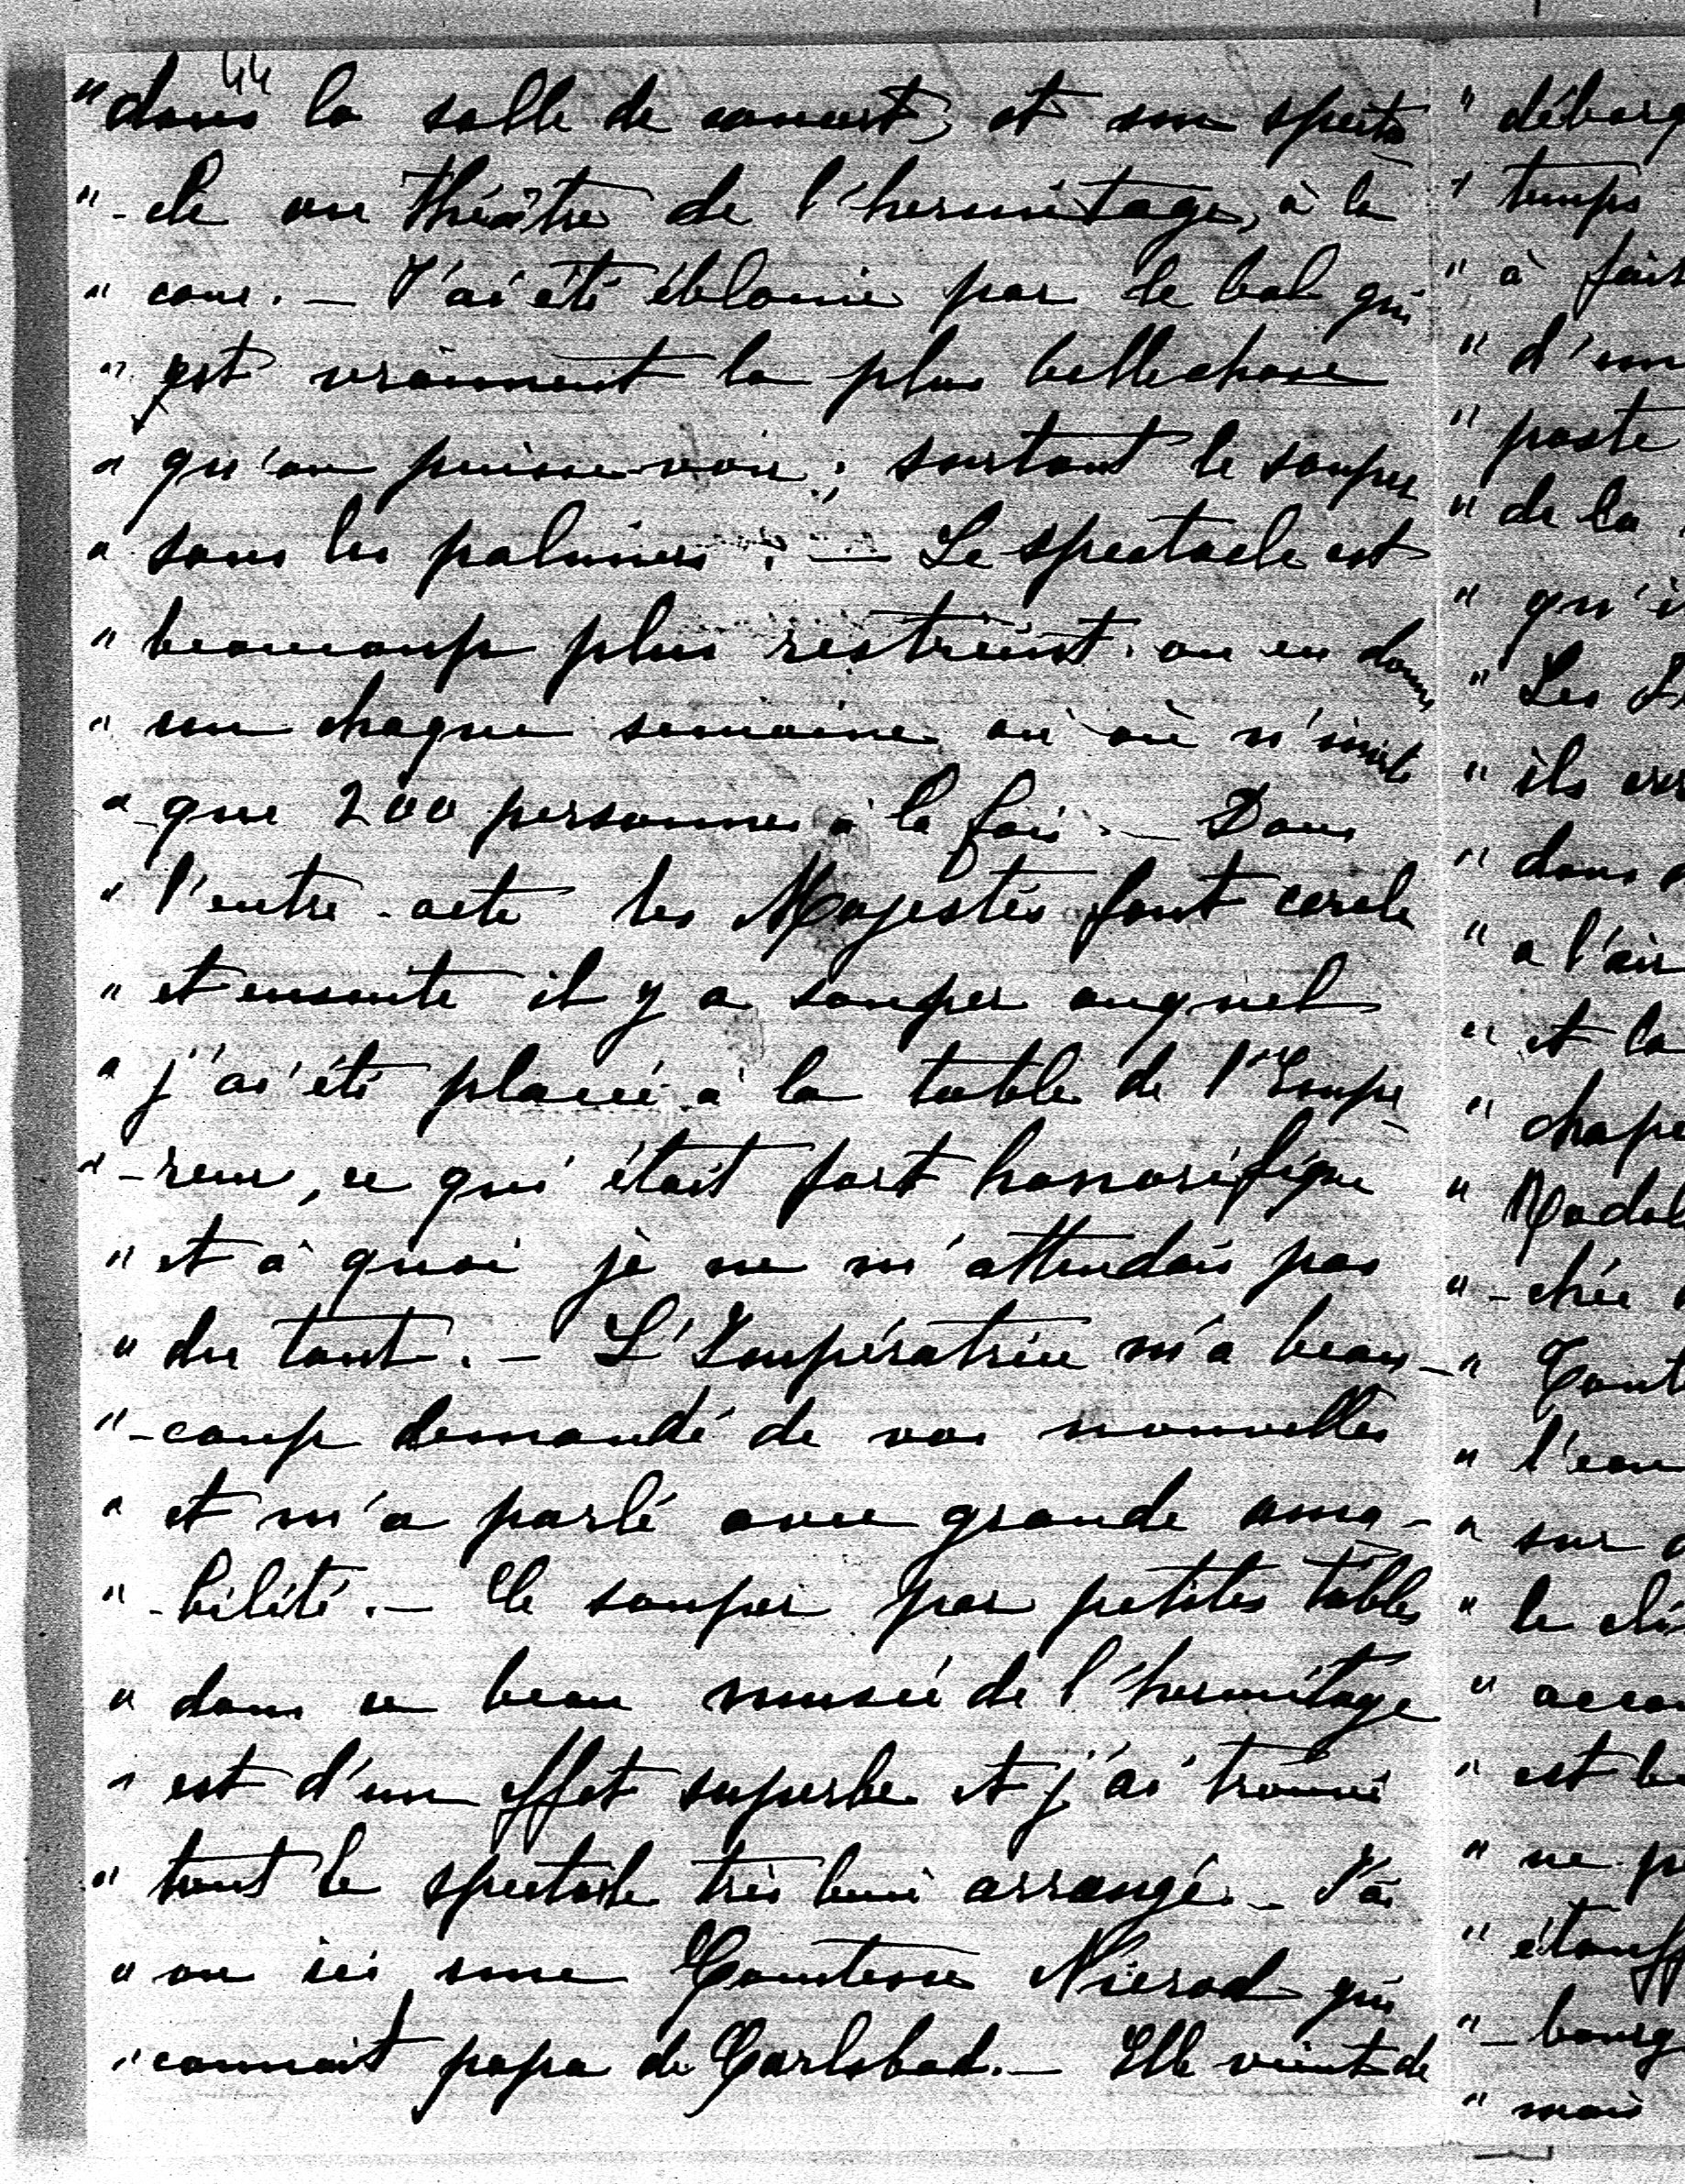 44
"dans la salle de concert, et un specta
"-cle au théâtre de l'hermitage, à la
" cour. — J'ai été éblouie par le bal qui
" est vraiment la plus belle chose
" qu'on puisse voir ; surtout le souper
" sous les palmiers. — Le spectacle est
" beaucoup plus restreint. on en donne
" un chaque semaine où on n'invite
"-que 200 personnes à la fois. — Dans
" l'entre-acte les Majestés font cercle
" et ensuite il y a souper auquel
" j'ai été placée à la table de l'Empe
"-reur, ce qui était fort honorifique
" et à quoi je ne m'attendais pas
" du tout. — L'Impératrice m'a beau-
"-coup demandé de vos nouvelles
" et m'a parlé avec grande ama-
"-bilité. — Ce souper par petites tables
" dans ce beau musée de l'hermitage
" est d'un effet superbe et j'ai trouvé
" tout le spectacle très bien arrangé. — J'ai
" vu ici une Comtesse Nierod qui
" connait papa de Carlsbad. — Elle vient de
" temps
" à
" poste
" de la
" Les
" ils
" dans
" a l'air
" et la
" sur
" le
" est
" mais